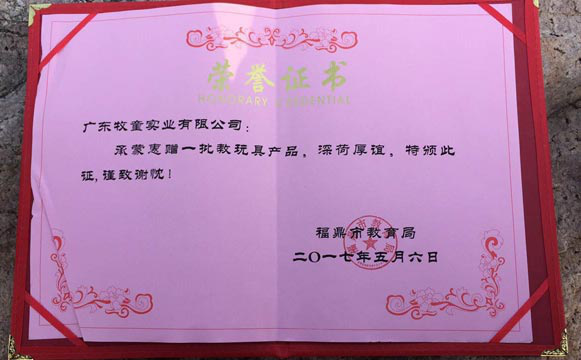 荣誉证书
HONORARY CREDENTIAL
广东牧童实业有限公司：
承蒙惠赠一批教玩具产品，深荷厚谊，特颁此
证,谨致谢忱！
福鼎市教育局
二〇一七年五月六日